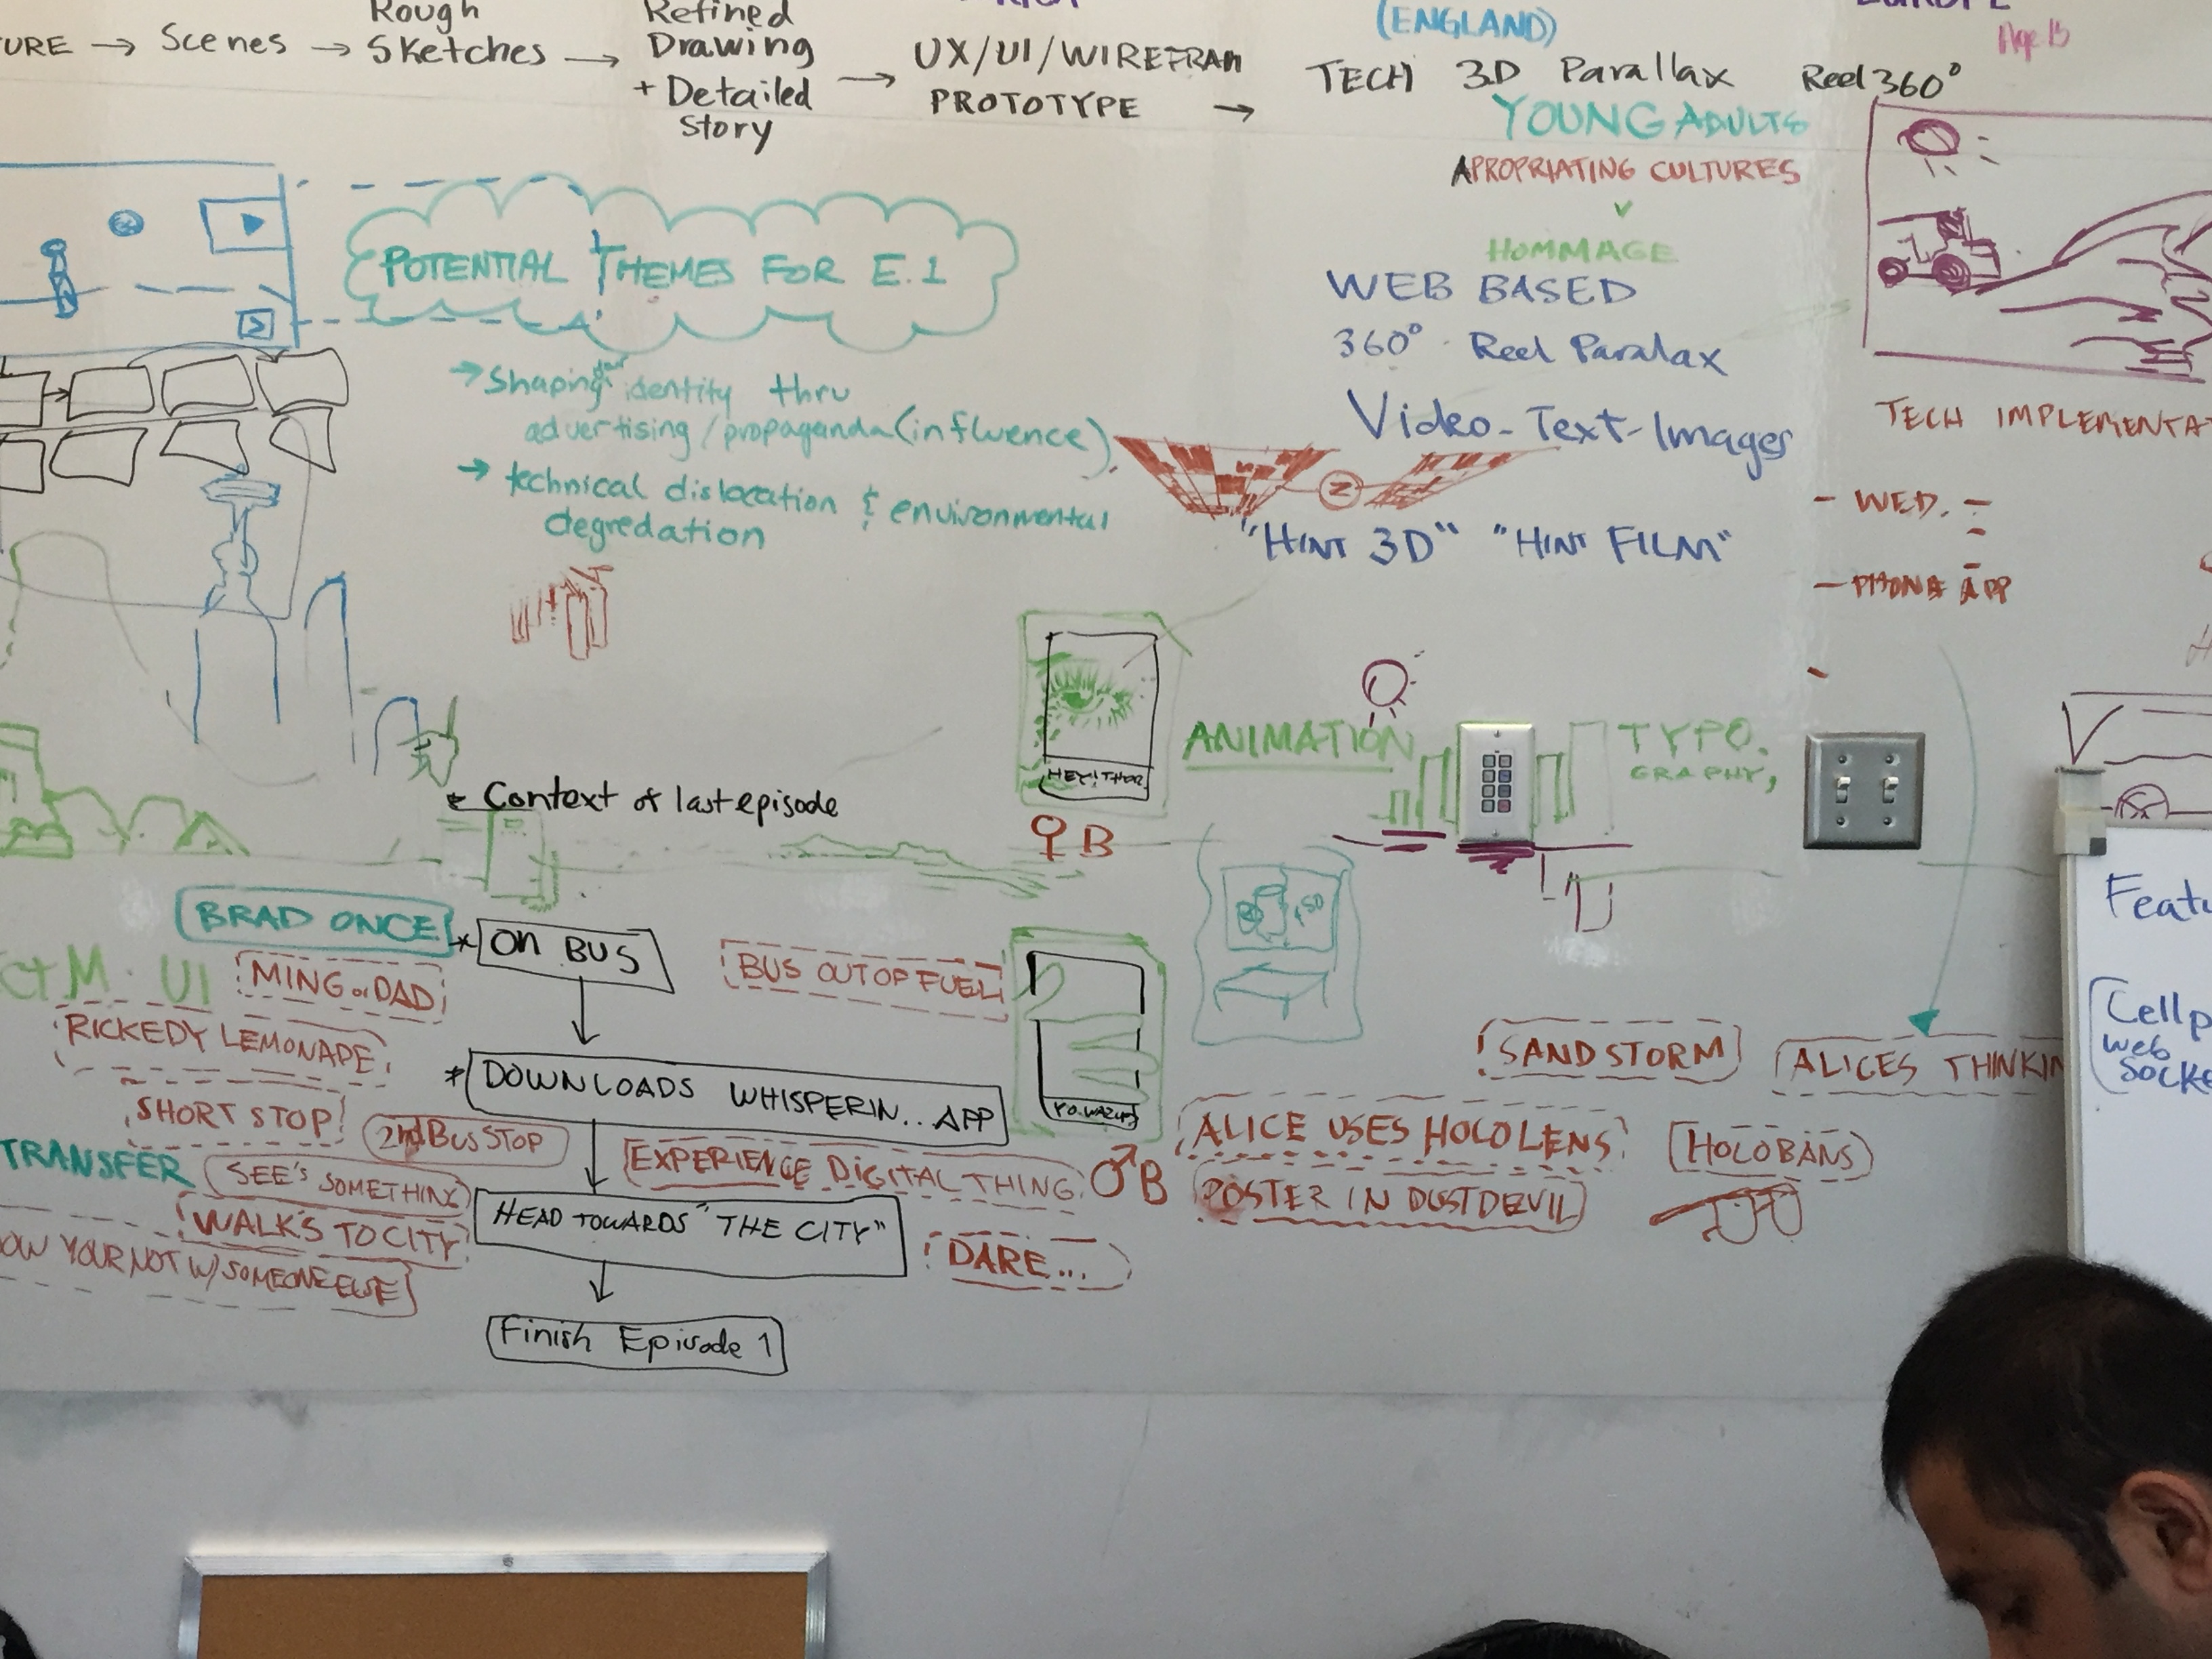 Rough
Sketches
→ Scenes →
→
Refined
Drawing
+ Detailed
Story
→
UX/UI/WIREFRAM
PROTOTYPE →
(ENGLAND)
TECH 3D Parallax Reel 360°
Age 13
YOUNG ADULTS
APROPRIATING CULTURES
HOMMAGE
WEB BASED
360° Reel Paralax
Video - Text - Images
"HINT 3D" "HINT FILM"
POTENTIAL THEMES FOR E.1
→ Shaping identity thru
advertising / propaganda (influence)
→ technical dislocation & environmental
degredation
TECH IMPLEMENTA
- WED. -
- PHONE APP
HEY! THOR
♀ B
ANIMATION
TYPO.
GRAPHY,
* Context of last episode
BRAD ONCE
* ON BUS
UI
MING or DAD
BUS OUT OF FUEL
RICKEDY LEMONADE
* DOWNLOADS WHISPERIN... APP
SHORT STOP
2nd BUS STOP
TRANSFER
SEE'S SOMETHING
EXPERIENCE DIGITAL THING
♂ B
WALK'S TO CITY
HEAD TOWARDS "THE CITY"
DARE...
OW YOUR NOT W/ SOMEONE ELSE
Finish Episode 1
SANDSTORM
ALICES THINKIN
ALICE USES HOLOLENS
HOLOBANS
POSTER IN DUSTDEVIL
Featu
Cellp
Web
Socke